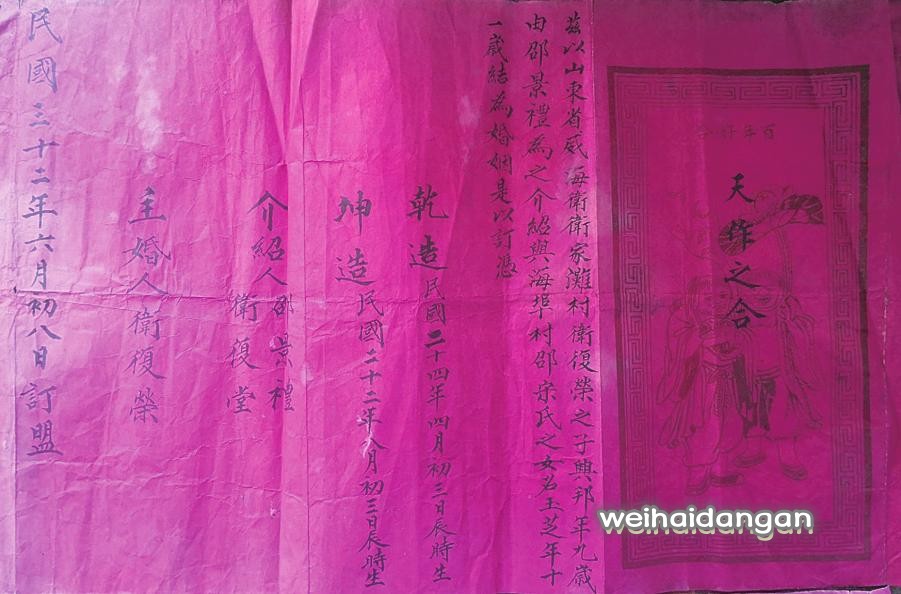 百年好合
天作之合
茲以山東省威海衛衛家灘村衛復榮之子興邦年九歲
由邵景禮為之介紹與海埠村邵宋氏之女名玉芝年十
一歲結為婚姻是以訂憑
乾造民國二十四年四月初三日辰時生
坤造民國二十二年八月初三日辰時生
介紹人邵景禮
衛復堂
主婚人衛復榮
民國三十二年六月初八日訂盟
weihaidangan